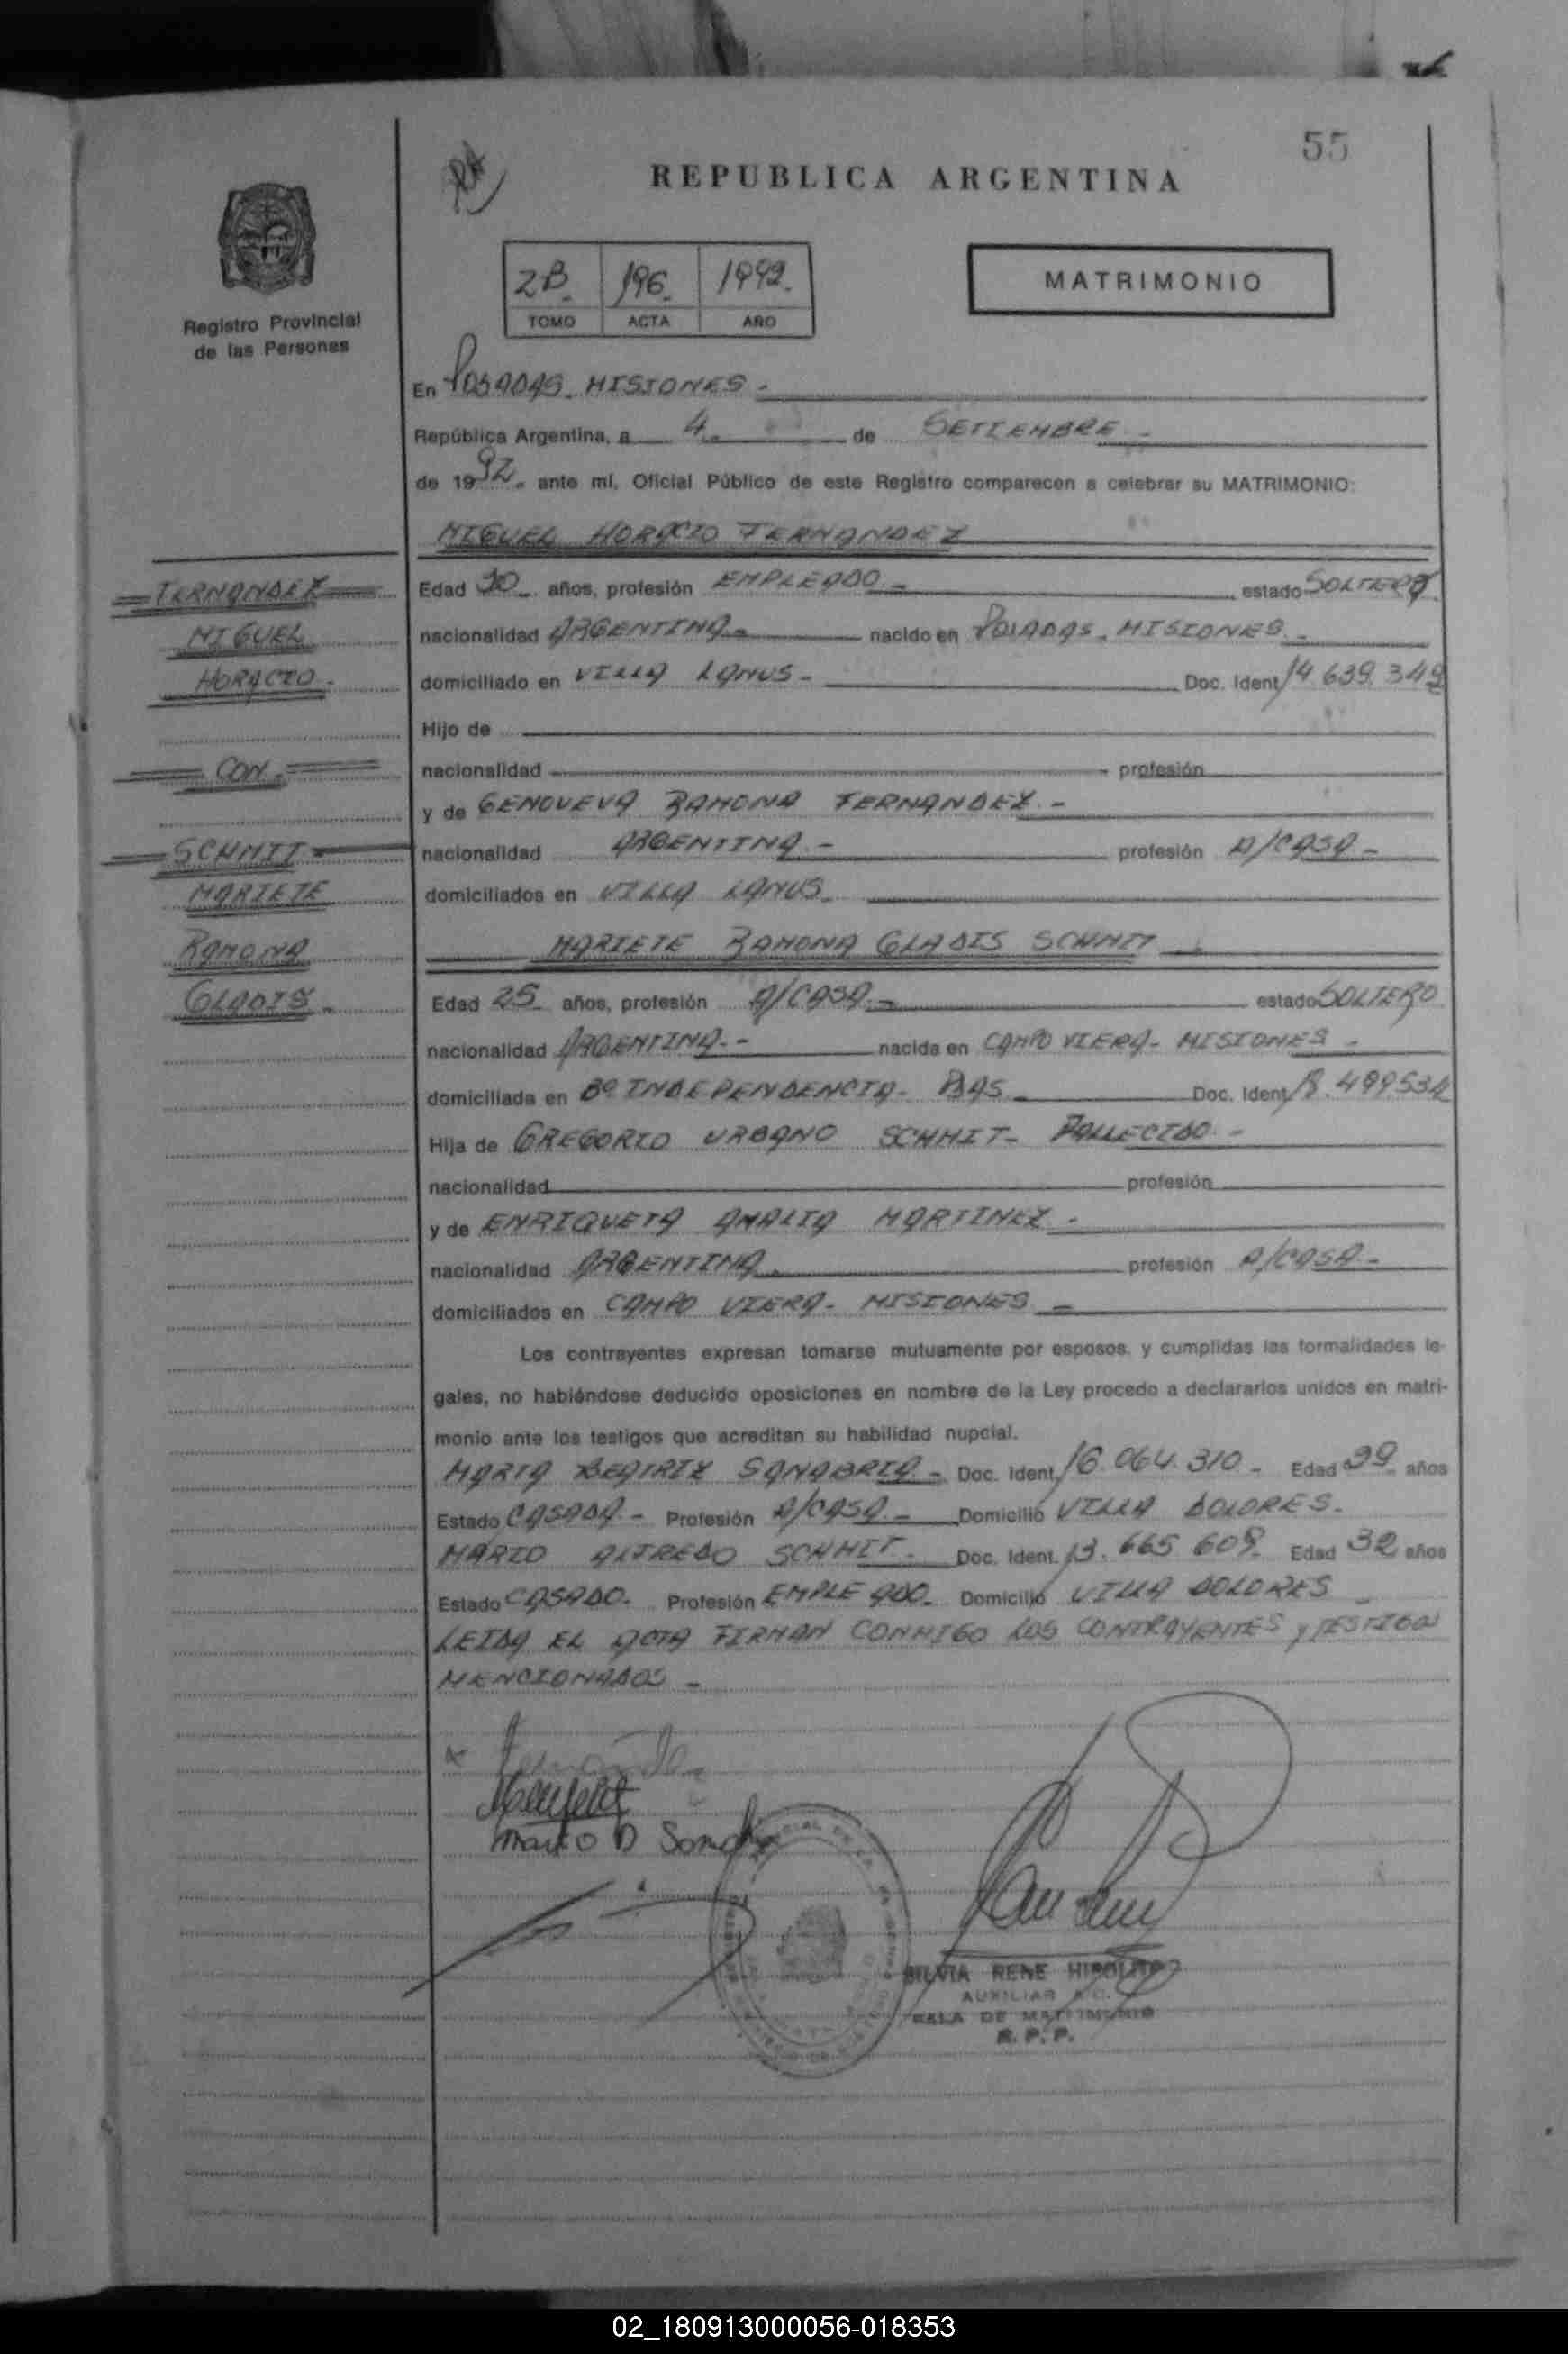 55
REPUBLICA ARGENTINA
Registro Provincial
de las Personas
2B. 196. 1992.
TOMO ACTA AÑO
MATRIMONIO
En POSADAS. MISIONES -
República Argentina, a 4. de SETIEMBRE -
de 1992. ante mí, Oficial Público de este Registro comparecen a celebrar su MATRIMONIO:
MIGUEL HORACIO FERNANDEZ
FERNANDEZ
MIGUEL
HORACIO.-
CON.-
SCHMIT
MARIETE
RAMONA
GLADIS -
Edad 30 años, profesión EMPLEADO.- estado SOLTERO
nacionalidad ARGENTINA - nacido en POSADAS. MISIONES -
domiciliado en VILLA LANUS - Doc. Ident. 14.639.349
Hijo de
nacionalidad profesión
y de GENOVEVA RAMONA FERNANDEZ.-
nacionalidad ARGENTINA.- profesión A/CASA -
domiciliados en VILLA LANUS.
MARIETE RAMONA GLADIS SCHMIT
Edad 25 años, profesión A/CASA.- estado SOLTERO
nacionalidad ARGENTINA.- nacida en CAMPO VIERA - MISIONES -
domiciliada en Bº INDEPENDENCIA - Doc. Ident.
Hija de GREGORIO URBANO SCHMIT - FALLECIDO.-
nacionalidad profesión
y de ENRIQUETA AMALIA MARTINEZ.
nacionalidad ARGENTINA. profesión A/CASA.-
domiciliados en CAMPO VIERA - MISIONES -
Los contrayentes expresan tomarse mutuamente por esposos, y cumplidas las formalidades le-
gales, no habiéndose deducido oposiciones en nombre de la Ley procedo a declararlos unidos en matri-
monio ante los testigos que acreditan su habilidad nupcial.
MARIA BEATRIZ SANABRIA - Doc. Ident. 16.064.310 - Edad años
Estado CASADA.- Profesión A/CASA.- Domicilio VILLA DOLORES.
MARIO ALFREDO SCHMIT. Doc. Ident. 13.665.609. Edad 32 años
Estado CASADO. Profesión EMPLEADO. Domicilio VILLA DOLORES
LEIDA EL ACTA FIRMAN CONMIGO LOS CONTRAYENTES y TESTIGOS
MENCIONADOS -
SILVIA RENE HIPOLITO
AUXILIAR
SALA DE MATRIMONIO
R. P. P.
02_180913000056-018353